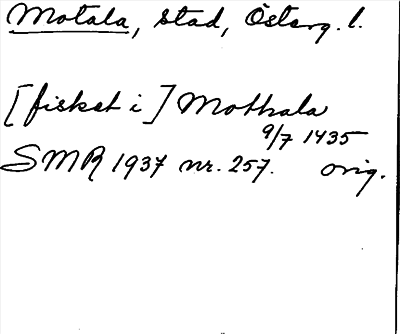 Motala, stad, Österg. l.
[fisket i] Mothala
9/7 1435
SMR 1937 nr. 257. orig.